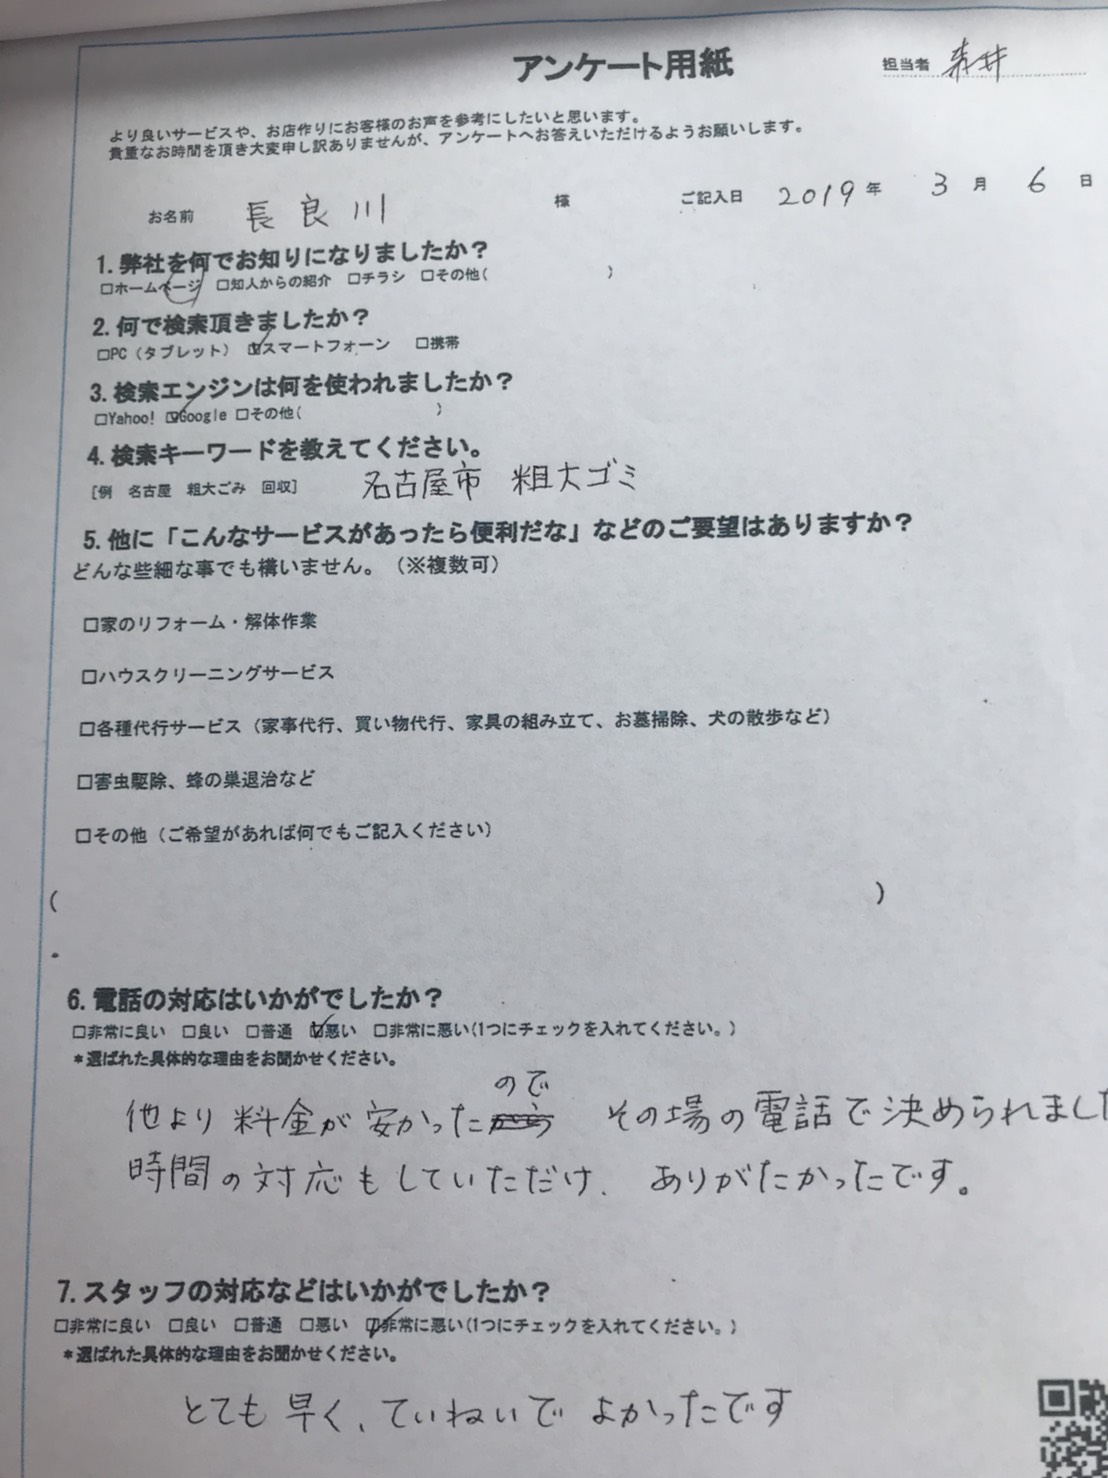 アンケート用紙
担当者
より良いサービスや、お店作りにお客様のお声を参考にしたいと思います。
貴重なお時間を頂き大変申し訳ありませんが、アンケートへお答えいただけるようお願いします。
お名前 長良川 様 ご記入日 2019年 3月 6日
1. 弊社を何でお知りになりましたか？
□ホームページ □知人からの紹介 □チラシ □その他( )
2. 何で検索頂きましたか？
□PC（タブレット） ☑スマートフォーン □携帯
3. 検索エンジンは何を使われましたか？
□Yahoo! ☑Google □その他( )
4. 検索キーワードを教えてください。
[例 名古屋 粗大ごみ 回収] 名古屋市 粗大ゴミ
5. 他に「こんなサービスがあったら便利だな」などのご要望はありますか？
どんな些細な事でも構いません。（※複数可）
□家のリフォーム・解体作業
□ハウスクリーニングサービス
□各種代行サービス（家事代行、買い物代行、家具の組み立て、お墓掃除、犬の散歩など）
□害虫駆除、蜂の巣退治など
□その他（ご希望があれば何でもご記入ください）
( )
6. 電話の対応はいかがでしたか？
□非常に良い □良い □普通 ☑悪い □非常に悪い(1つにチェックを入れてください。)
*選ばれた具体的な理由をお聞かせください。
他より料金が安かったので その場の電話で決められました
時間の対応もしていただけ、ありがたかったです。
7. スタッフの対応などはいかがでしたか？
□非常に良い □良い □普通 □悪い ☑非常に悪い(1つにチェックを入れてください。)
*選ばれた具体的な理由をお聞かせください。
とても早く、ていねいで よかったです